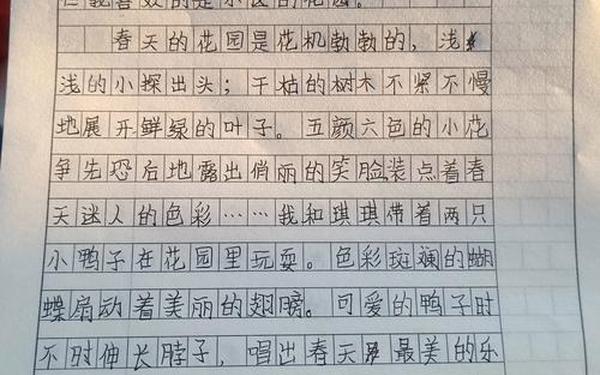 我喜欢的是小区的花园。
春天的花园是花机勃勃的，浅
浅的小探出头；干枯的树木不紧不慢
地展开鲜绿的叶子。五颜六色的小花
争先恐后地露出俏丽的笑脸装点着春
天迷人的色彩……我和琪琪带着两只
小鸭子在花园里玩耍。色彩斑斓的蝴
蝶扇动着美丽的翅膀。可爱的鸭子时
不时伸长脖子，唱出春天最美的乐